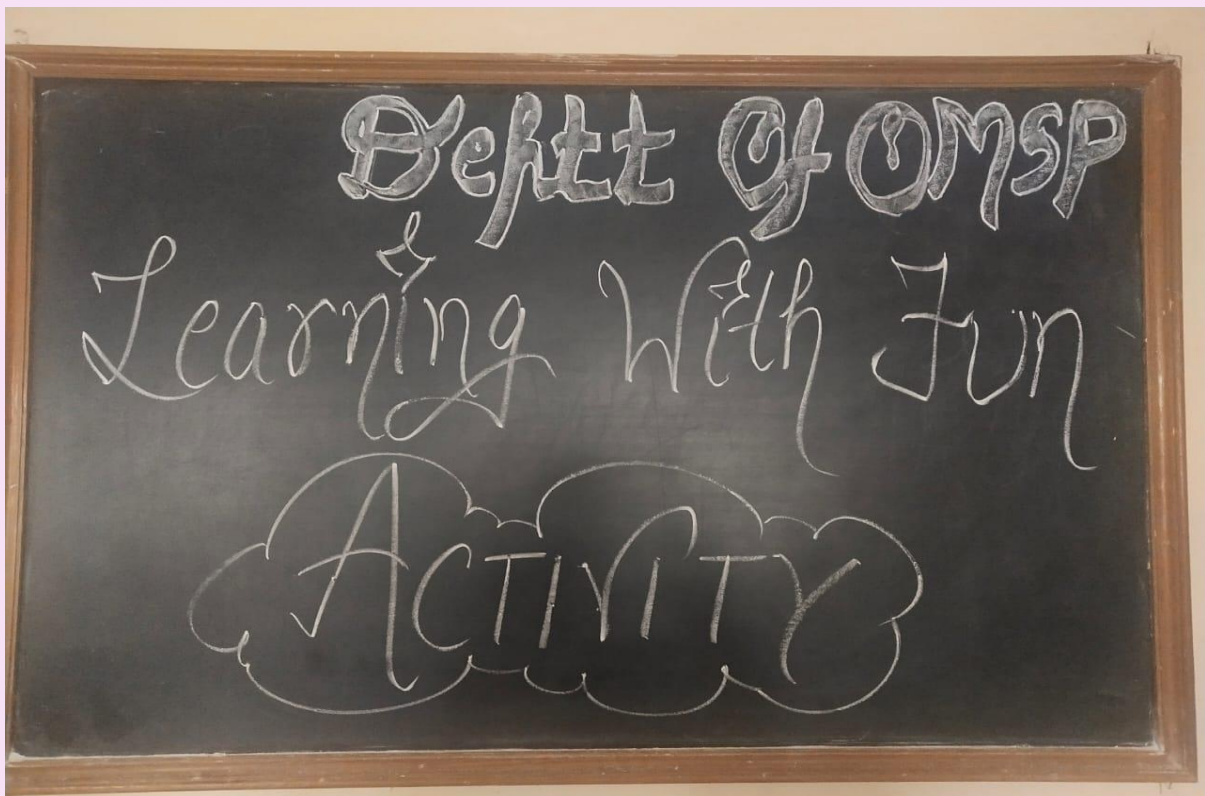 Deptt Of OMSP
Learning With Fun
ACTIVITY